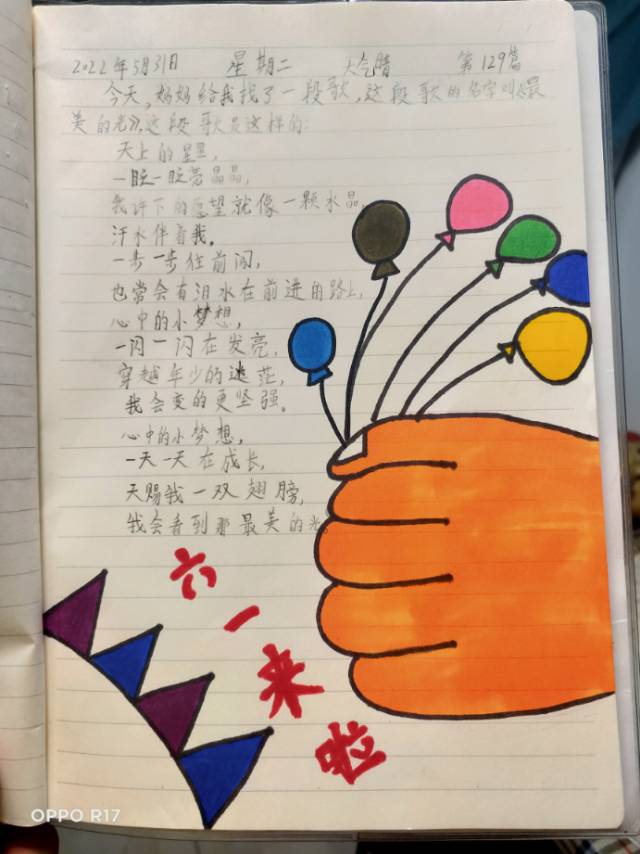 2022年5月31日 星期二 天气晴 第129篇
今天,妈妈给我找了一段歌,这段歌的名字叫《最
美的光》,这段歌是这样的:
天上的星星,
一眨一眨亮晶晶,
我许下的愿望就像一颗水晶,
汗水伴着我。
一步一步往前闯,
也常会有泪水在前进的路上,
心中的小梦想,
一闪一闪在发亮,
穿越年少的迷茫,
我会变的更坚强。
心中的小梦想,
一天一天在成长,
天赐我一双翅膀,
我会看到那最美的光。
六一来啦
OPPO R17